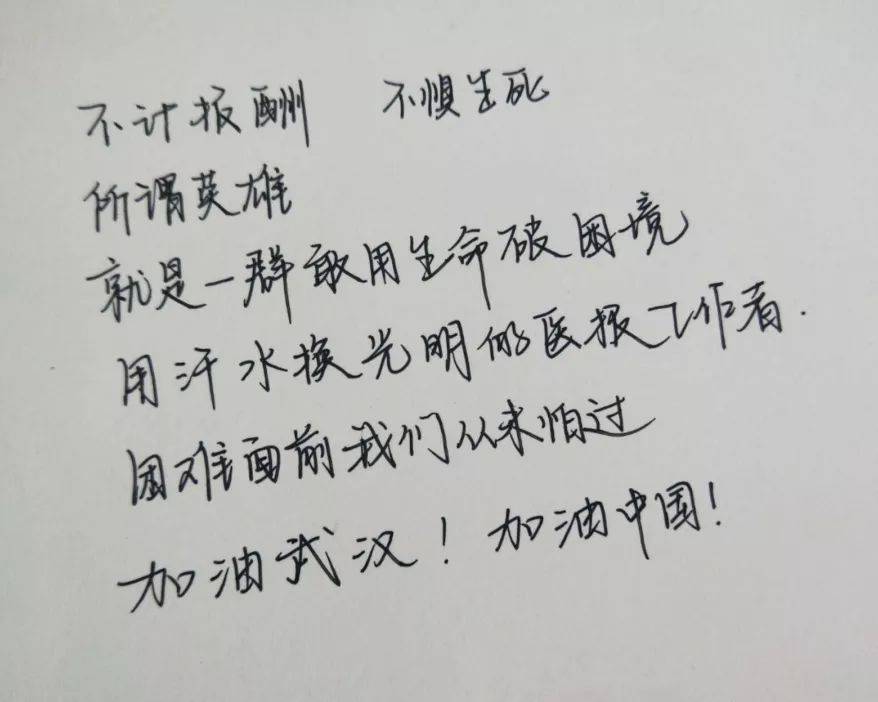 不计报酬 不惧生死
所谓英雄
就是一群敢用生命破困境
用汗水换光明的医报工作者.
困难面前我们从未怕过
加油武汉！加油中国！